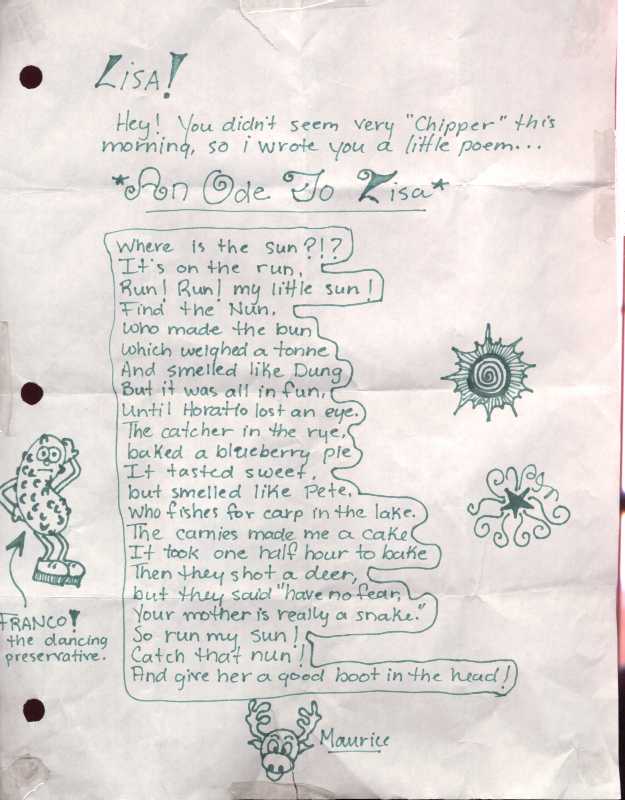 LISA!
Hey! You didn't seem very "Chipper" this
morning, so i wrote you a little poem...
*An Ode To Lisa*
Where is the sun?!?
It's on the run,
Run! Run! my little sun!
Find the Nun,
who made the bun
which weighed a tonne
And smelled like Dung
But it was all in fun,
Until Horatio lost an eye.
The catcher in the rye,
baked a blueberry pie
It tasted sweet,
but smelled like Pete,
who fishes for carp in the lake.
The carnies made me a cake
It took one half hour to bake
Then they shot a deer,
but they said "have no fear,
Your mother is really a snake."
So run my sun!
Catch that nun!
And give her a good boot in the head!
FRANCO!
the dancing
preservative.
Maurice